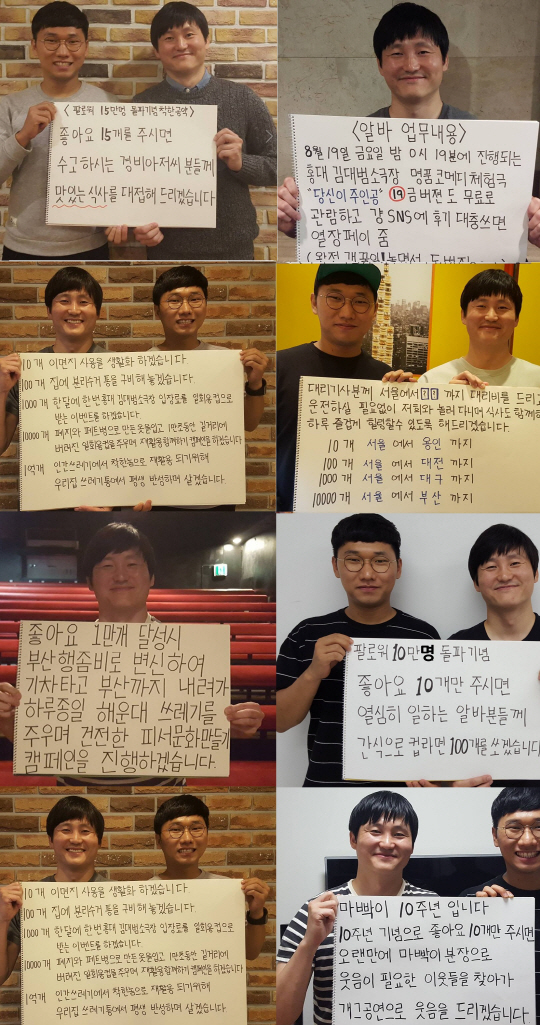 < 팔로워 15만명 돌파기념 착한공약 >
좋아요 15개를 주시면
수고하시는 경비아저씨 분들께
맛있는 식사를 대접해 드리겠습니다
<알바 업무내용>
8월 19일 금요일 밤 0시 19분에 진행되는
홍대 김대범소극장 명품코메디 체험극
"당신이 주인공" 19 금버젼 도 무료로
관람하고 걍 SNS에 후기 대충쓰면
열장페이 줌
10개 이면지 사용을 생활화 하겠습니다
100개 집에 분리수거 통을 구비해 놓겠습니다.
1000개 한달에 한번 홍대 김대범소극장 입장료를 일회용컵으로
받는 이벤트를 하겠습니다.
10000개 폐지와 페트병으로 만든 옷을입고 1만보동안 길거리에
버려진 일회용컵을 주우며 재활용함께하기 캠페인을 하겠습니다
1억개 인간쓰레기에서 착한놈으로 재활용 되기위해
우리집 쓰레기통에서 평생 반성하며 살겠습니다.
대리기사분께 서울에서 까지 대리비를 드리고
운전하실 필요없이 저희와 놀러 다니며 식사도 함께하
하루 즐겁게 힐링할수 있도록 해드리겠습니다.
10개 서울 에서 용인 까지
100개 서울 에서 대전 까지
1000개 서울 에서 대구 까지
10000개 서울 에서 부산 까지
좋아요 1만개 달성시
부산행좀비로 변신하여
기차타고 부산까지 내려가
하루종일 해운대 쓰레기를
주우며 건전한 피서문화만들기
캠페인을 진행하겠습니다.
팔로워 10만명 돌파기념
좋아요 10개만 주시면
열심히 일하는 알바분들께
간식으로 컵라면 100개를 쏘겠습니다
10개 이면지 사용을 생활화 하겠습니다.
100개 집에 분리수거 통을 구비해 놓겠습니다.
1000개 한달에 한번 홍대 김대범소극장 입장료를 일회용컵으로
받는 이벤트를 하겠습니다.
10000개 폐지와 페트병으로 만든 옷을입고 1만보동안 길거리에
버려진 일회용컵을 주우며 재활용함께하기 캠페인을 하겠습니다
1억개 인간쓰레기에서 착한놈으로 재활용 되기위해
우리집 쓰레기통에서 평생 반성하며 살겠습니다.
마빡이 10주년 입니다
10주년 기념으로 좋아요 10개만 주시면
오랜만에 마빡이 분장으로
웃음이 필요한 이웃들을 찾아가
개그공연으로 웃음을 드리겠습니다